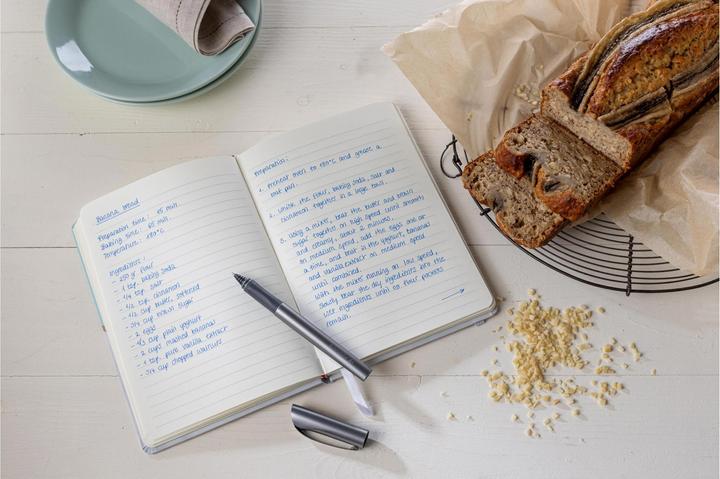 Banana bread
Preparation time: 15 min.
Baking time: 65 min.
Temperature: 180°C
Ingredients:
- 250 gr flour
- 1 tsp. baking soda
- 1/4 tsp. salt
- 1/2 tsp. cinnamon
- 1/2 cup butter, softened
- 3/4 cup brown sugar
- 2 eggs
- 1/3 cup plain yoghurt
- 2 cups mashed bananas
- 1 tsp. pure vanilla extract
- 3/4 cup chopped walnuts
Preparation:
1. Preheat oven to 180°C and grease a
loaf pan.
2. Whisk the flour, baking soda, salt and
cinnamon together in a large bowl.
3. Using a mixer, beat the butter and brown
sugar together on high speed until smooth
and creamy, about 2 minutes.
on medium speed, add the eggs one at
a time, and beat in the yoghurt, bananas
and vanilla extract on medium speed
until combined.
With the mixer running on low speed,
slowly beat the dry ingredients into the
wet ingredients until no flour pockets
remain.